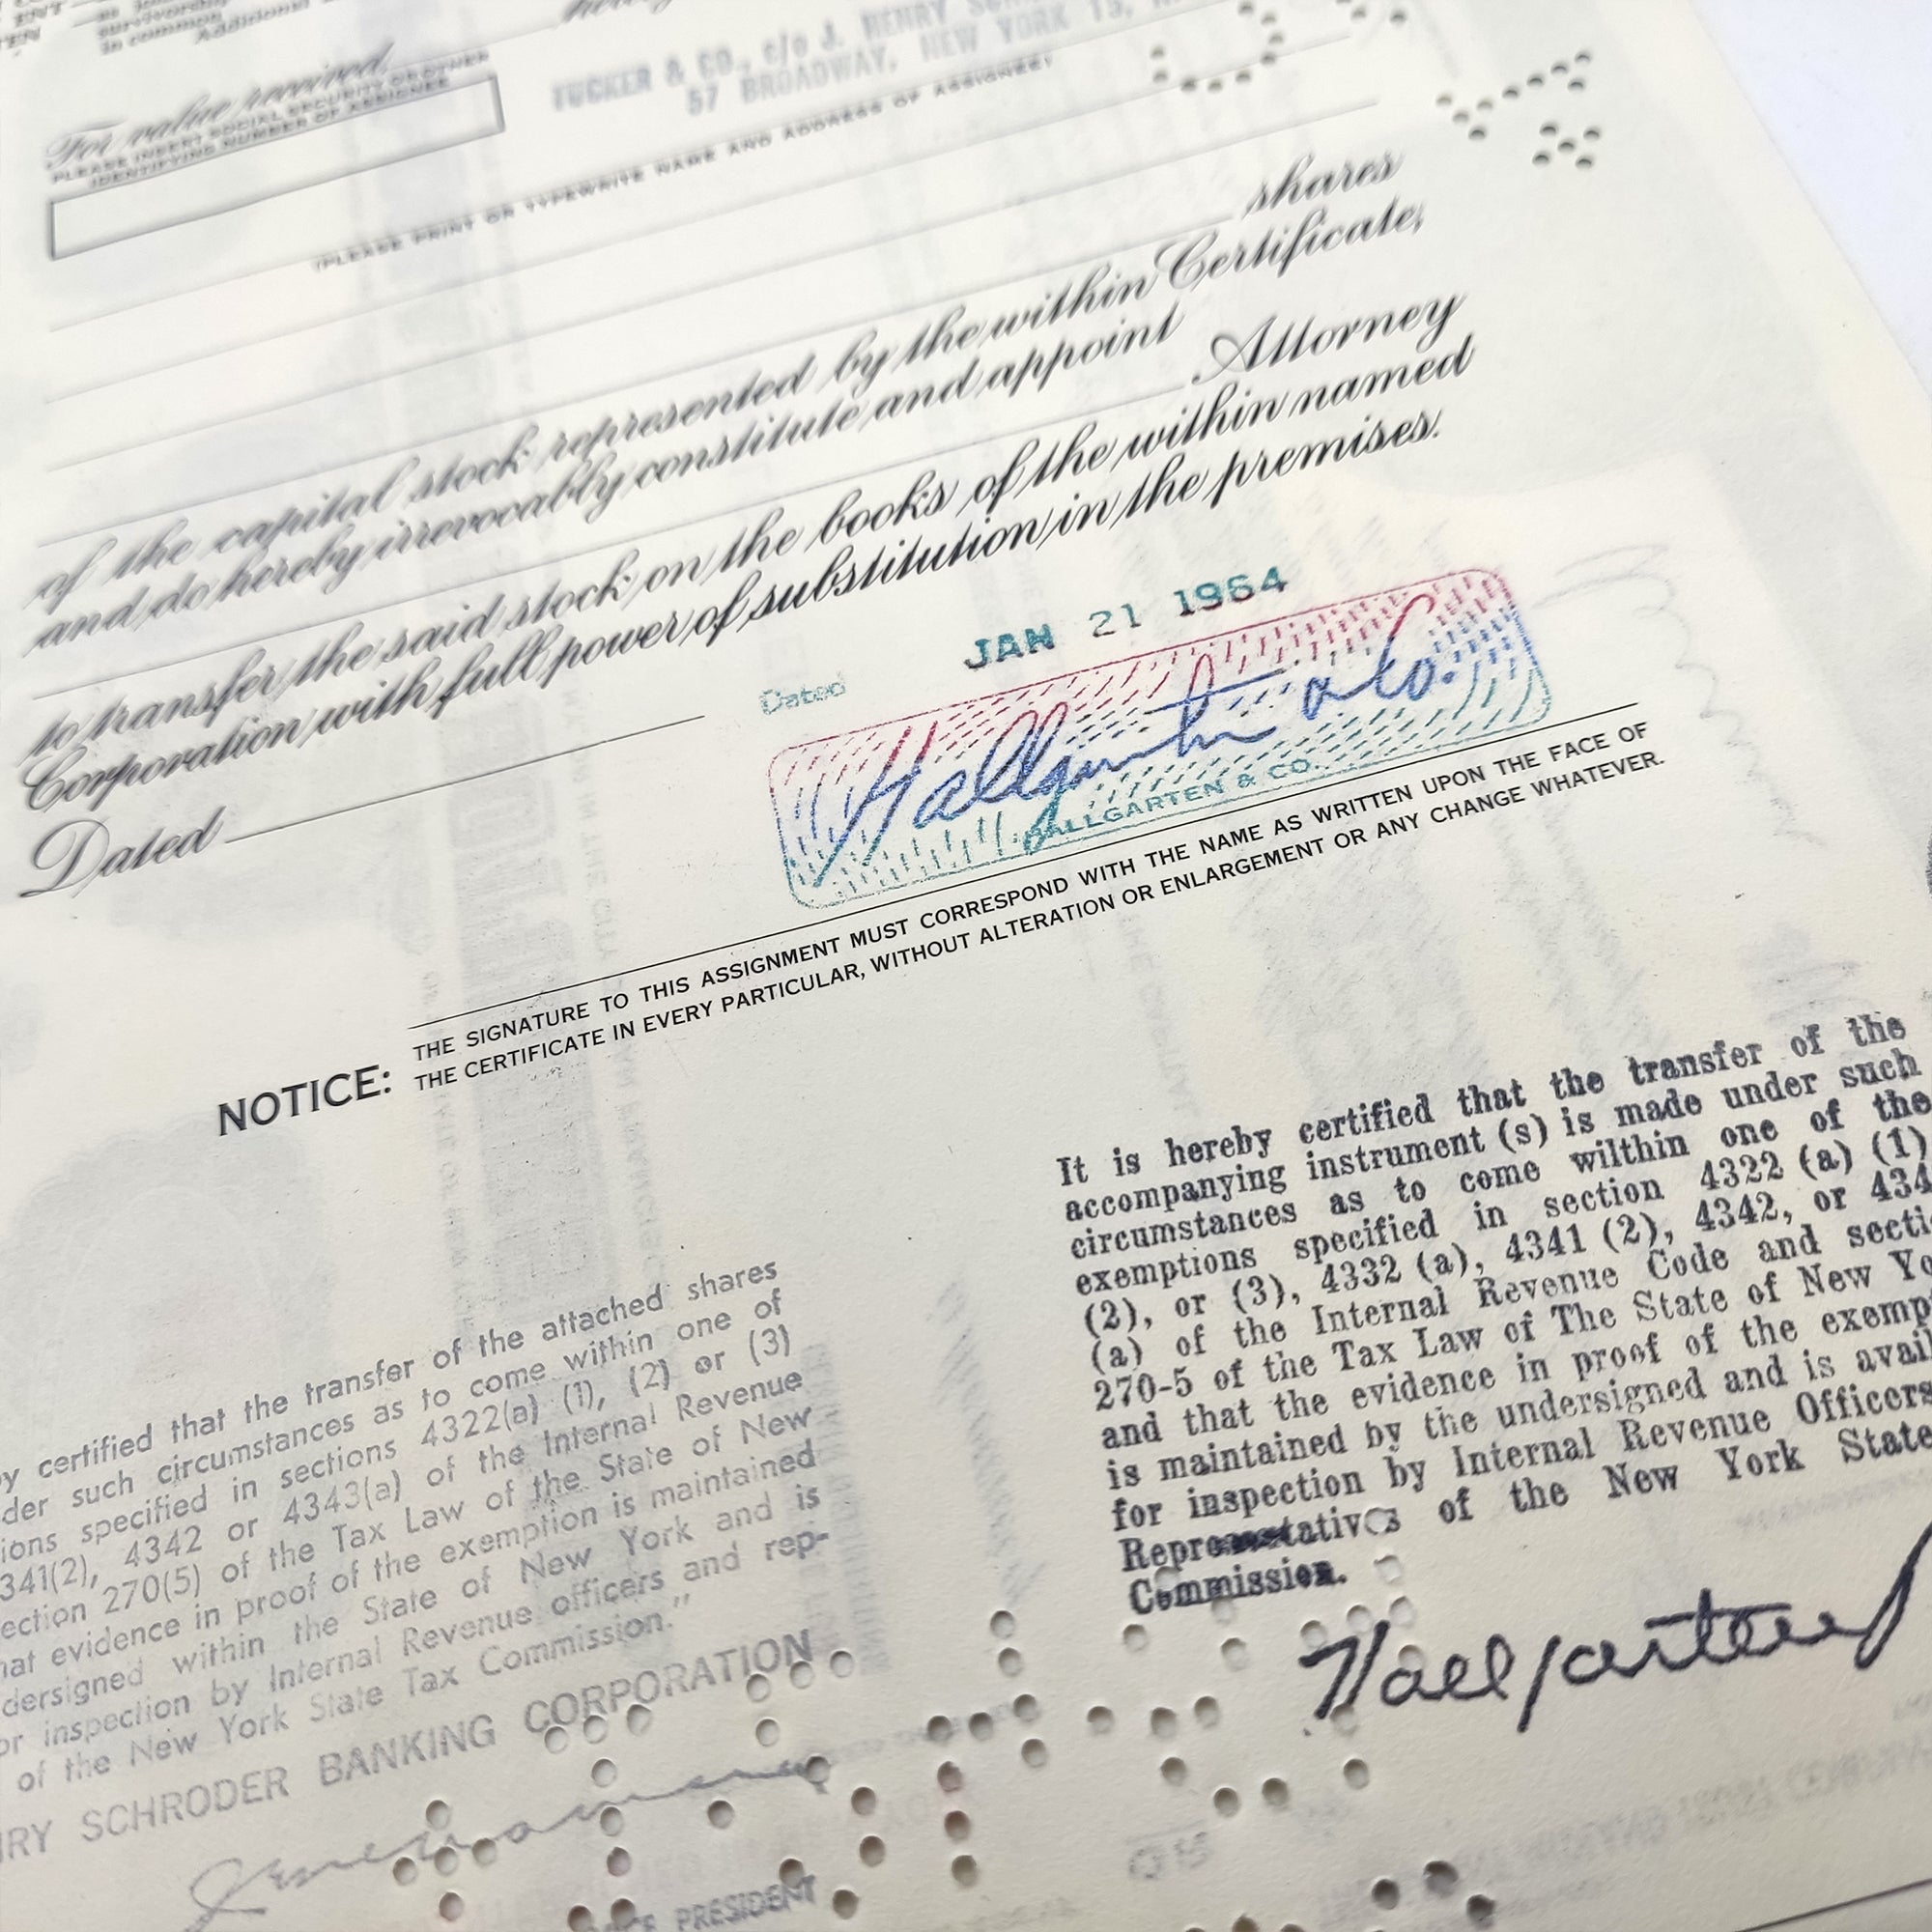 ENT
TEN
survivorship
in common
Additional
For value received,
PLEASE INSERT SOCIAL SECURITY OR OTHER
IDENTIFYING NUMBER OF ASSIGNEE
TUCKER & CO., c/o J. HENRY
57 BROADWAY, NEW YORK 15,
(PLEASE PRINT OR TYPEWRITE NAME AND ADDRESS OF ASSIGNEE)
shares
of the capital stock represented by the within Certificate,
and do hereby irrevocably constitute and appoint
Attorney
to transfer the said stock on the books of the within named
Corporation with full power of substitution in the premises.
Dated
Dated JAN 21 1964
Hallgarten & Co.
HALLGARTEN & CO.
NOTICE: THE SIGNATURE TO THIS ASSIGNMENT MUST CORRESPOND WITH THE NAME AS WRITTEN UPON THE FACE OF
THE CERTIFICATE IN EVERY PARTICULAR, WITHOUT ALTERATION OR ENLARGEMENT OR ANY CHANGE WHATEVER.
It is hereby certified that the transfer of the
accompanying instrument (s) is made under such
circumstances as to come wilthin one of the
exemptions specified in section 4322 (a) (1)
(2), or (3), 4332 (a), 4341 (2), 4342, or 434
(a) of the Internal Revenue Code and secti
270-5 of the Tax Law of The State of New Yo
and that the evidence in proof of the exemp
is maintained by the undersigned and is avail
for inspection by Internal Revenue Officers
Representatives of the New York State
Commission.
Hallgarten
y certified that the transfer of the attached shares
der such circumstances as to come within one of
ions specified in sections 4322(a) (1), (2) or (3)
341(2), 4342 or 4343(a) of the Internal Revenue
ection 270(5) of the Tax Law of the State of New
hat evidence in proof of the exemption is maintained
dersigned within the State of New York and is
or inspection by Internal Revenue officers and rep-
of the New York State Tax Commission."
NRY SCHRODER BANKING CORPORATION
VICE PRESIDENT